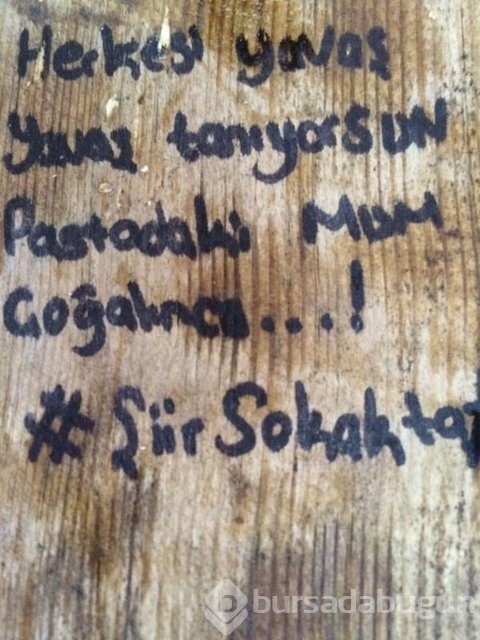 Herkesi yavaş
yavaş tanıyorSUN
Pastadaki MUM
Çoğalınca....!
#ŞiirSokakta
bursadabugün